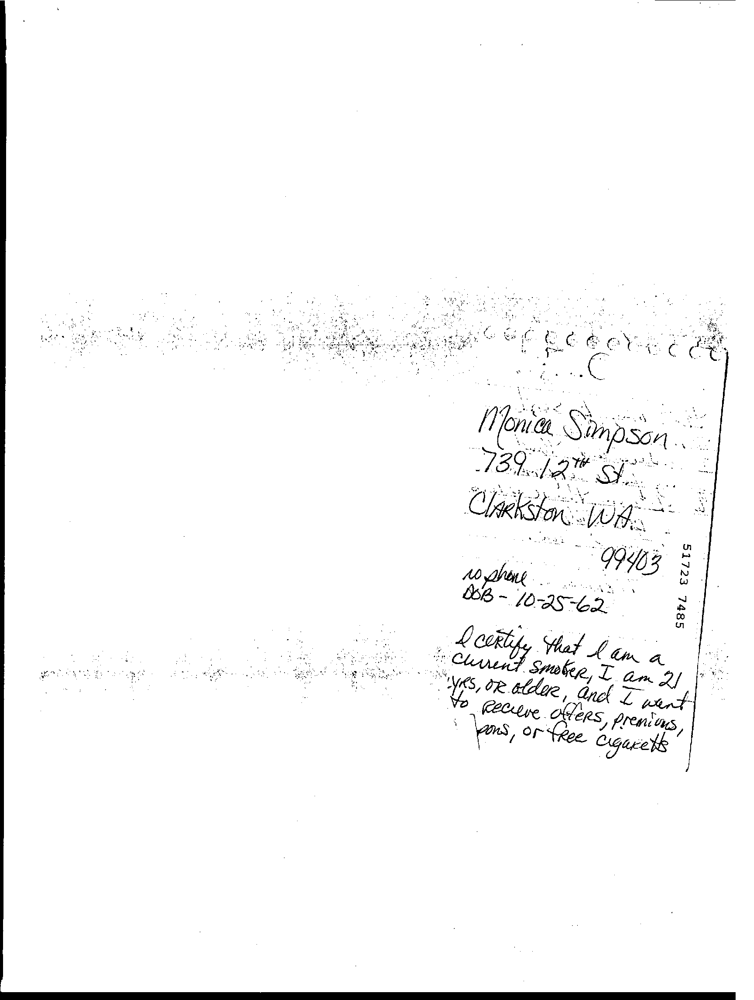 Monica Simpson
739 12TH St.
Clarkston WA.
99403
no phone
DOB - 10-25-62
51723 7485
I certify that I am a
current smoker, I am 21
yrs, or older, and I want
to recieve offers, premiums,
pons, or free cigaretts